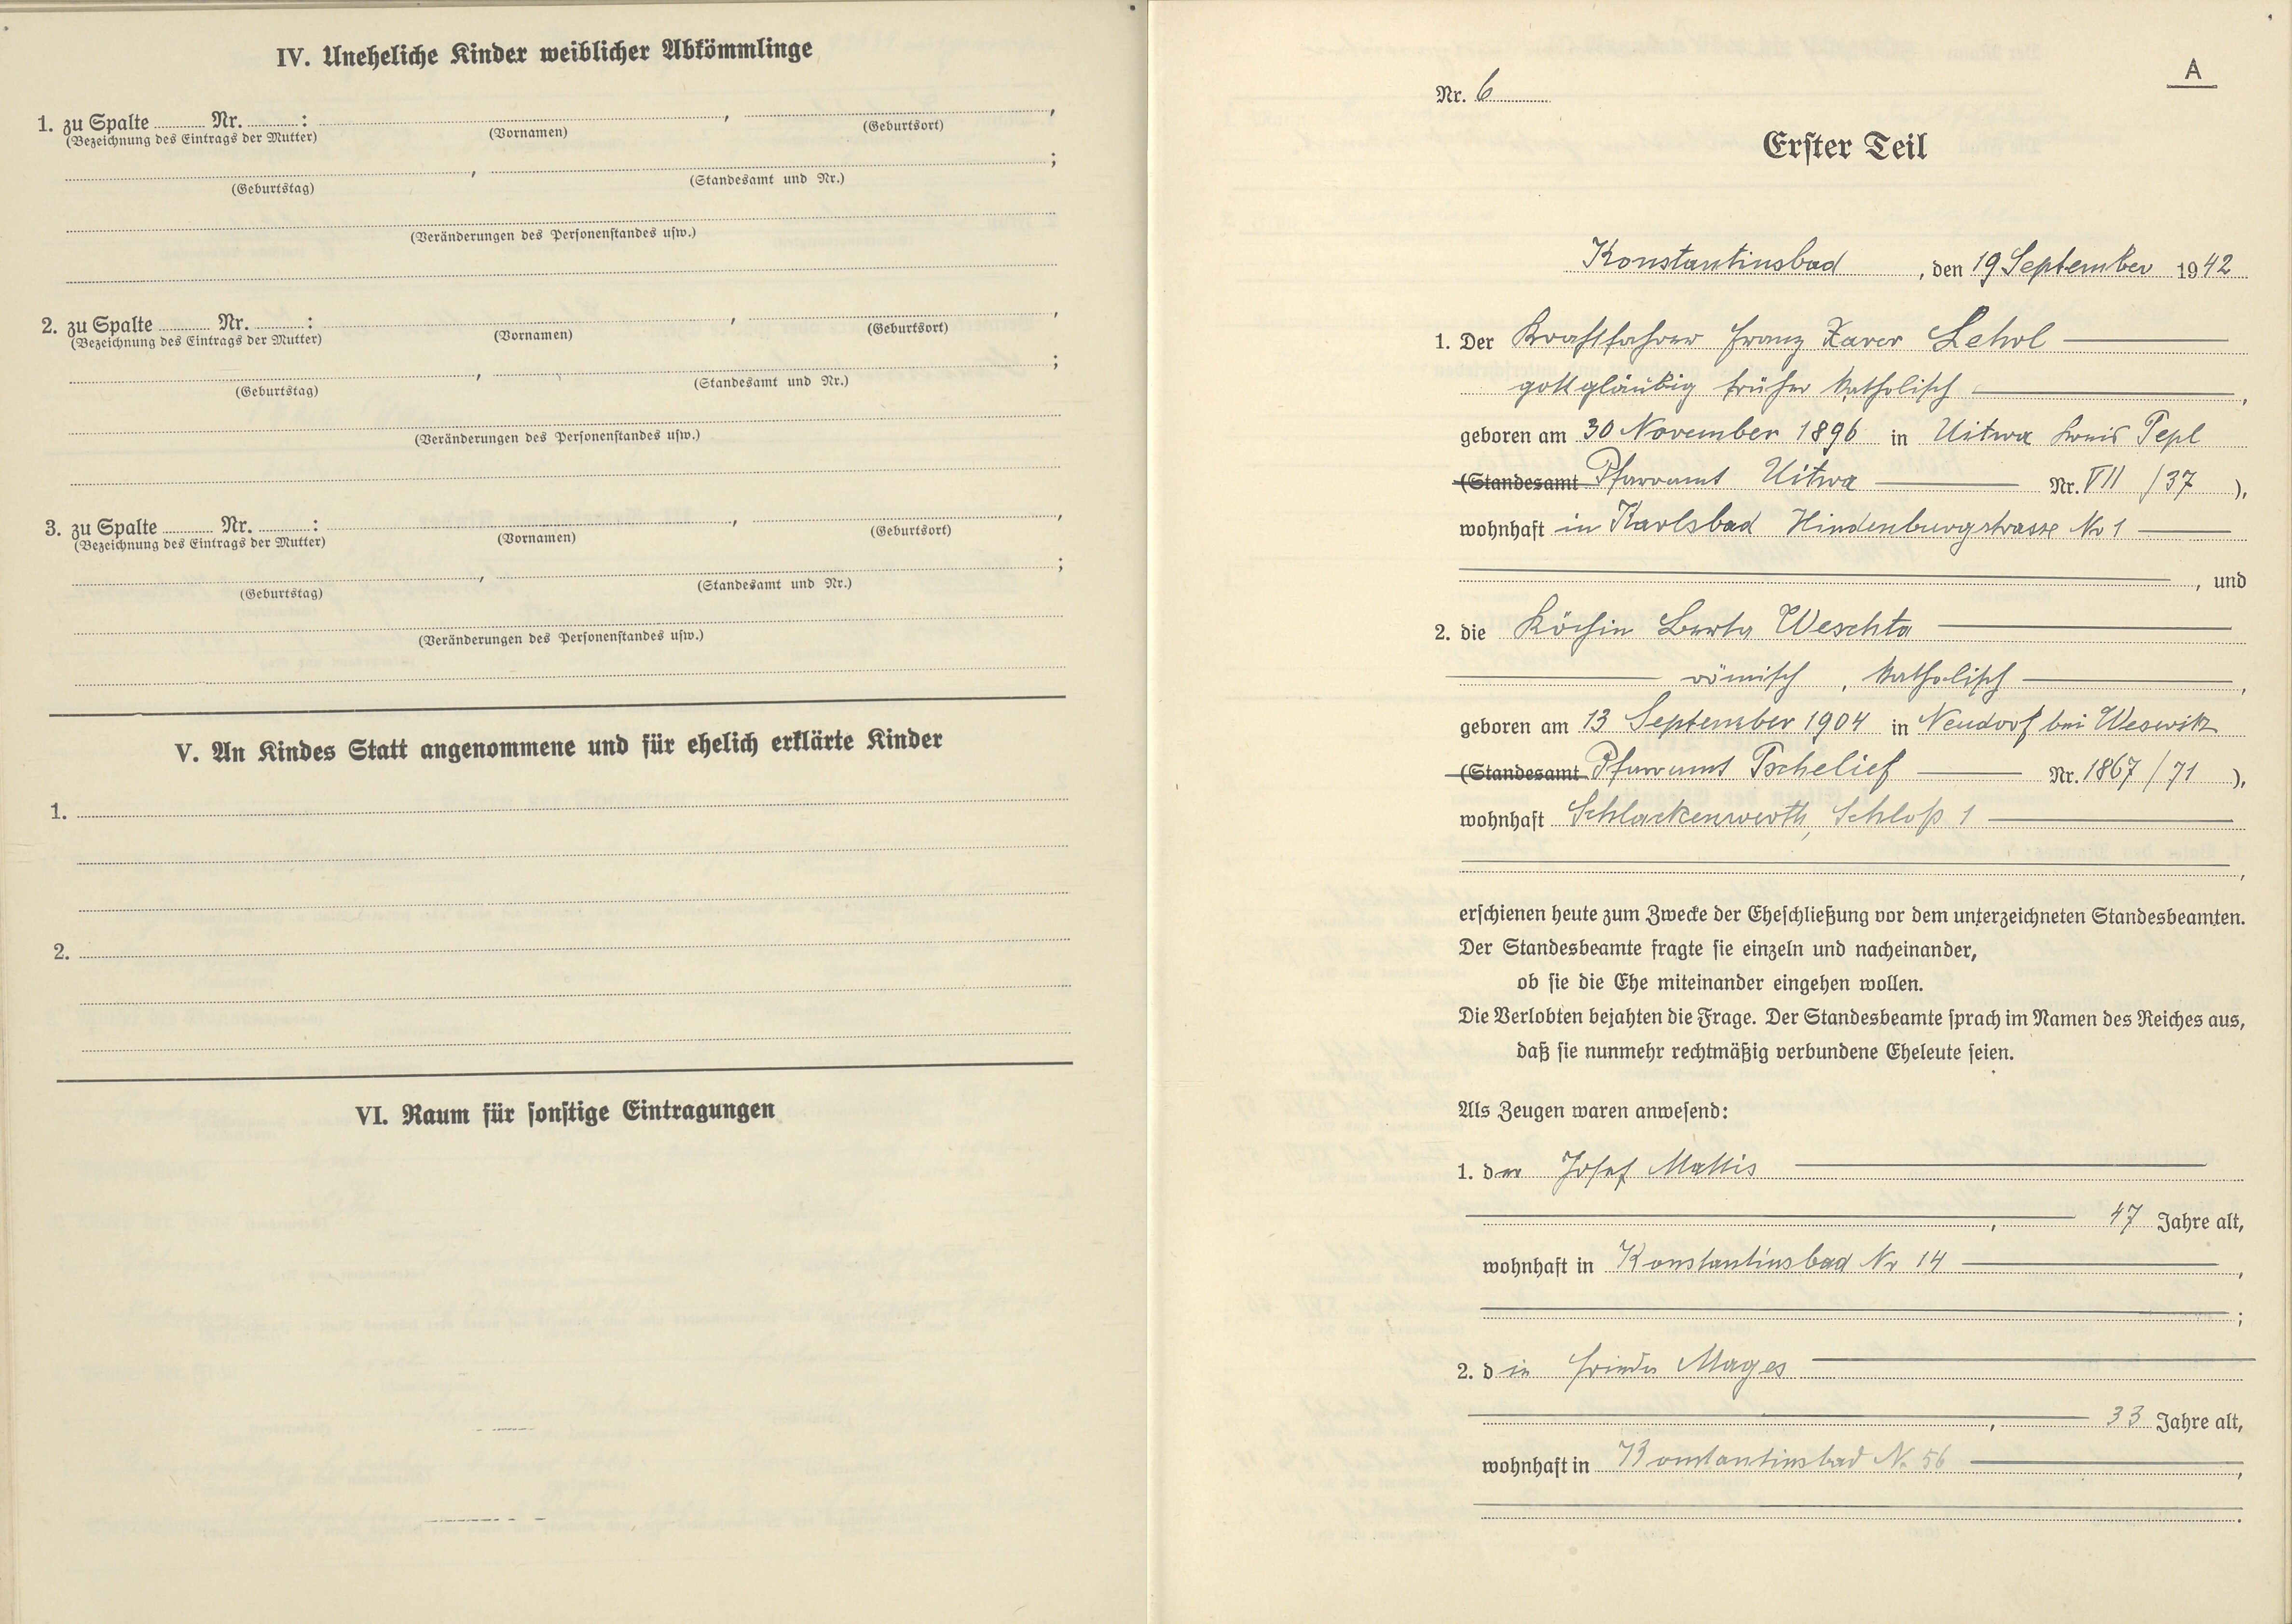 IV. Uneheliche Kinder weiblicher Abkömmlinge
1. zu Spalte ........ Nr. ........ : ........ , ........ ,
(Bezeichnung des Eintrags der Mutter) (Vornamen) (Geburtsort)
........ , ........ ;
(Geburtstag) (Standesamt und Nr.)
(Veränderungen des Personenstandes usw.)
2. zu Spalte ........ Nr. ........ : ........ , ........ ,
(Bezeichnung des Eintrags der Mutter) (Vornamen) (Geburtsort)
........ , ........ ;
(Geburtstag) (Standesamt und Nr.)
(Veränderungen des Personenstandes usw.)
3. zu Spalte ........ Nr. ........ : ........ , ........ ,
(Bezeichnung des Eintrags der Mutter) (Vornamen) (Geburtsort)
........ , ........ ;
(Geburtstag) (Standesamt und Nr.)
(Veränderungen des Personenstandes usw.)
V. An Kindes Statt angenommene und für ehelich erklärte Kinder
1.
2.
VI. Raum für sonstige Eintragungen
A
Nr. 6
Erster Teil
Konstantinsbad, den 19 September 1942
1. Der Kraftfahrer Franz Xaver Lehrl
gottgläubig früher katholisch,
geboren am 30 November 1896 in Uitwa Kreis Tepl
(Standesamt Pfarramt Uitwa Nr. VII /37 ),
wohnhaft in Karlsbad Hindenburgstrasse Nr 1
, und
2. die Köchin Berta Weschta
römisch, katholisch,
geboren am 13 September 1904 in Neudorf bei Weseritz
(Standesamt Pfarramt Tschelief Nr. 1867 / 71 ),
wohnhaft Schlackenwerth, Schloß 1
,
erschienen heute zum Zwecke der Eheschließung vor dem unterzeichneten Standesbeamten.
Der Standesbeamte fragte sie einzeln und nacheinander,
ob sie die Ehe miteinander eingehen wollen.
Die Verlobten bejahten die Frage. Der Standesbeamte sprach im Namen des Reiches aus,
daß sie nunmehr rechtmäßig verbundene Eheleute seien.
Als Zeugen waren anwesend:
1. der Josef Mattis
, 47 Jahre alt,
wohnhaft in Konstantinsbad Nr 14,
;
2. die Frieda Mages
, 33 Jahre alt,
wohnhaft in Konstantinsbad Nr. 56,
.